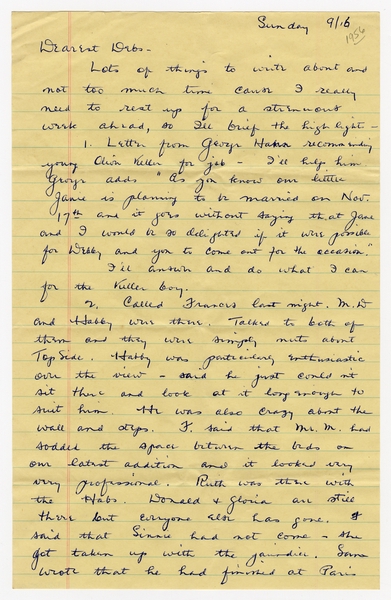 Sunday 9/16
1956
Dearest Debs -
Lots of things to write about and
not too much time cause I really
need to rest up for a strenuous
week ahead, so I'll brief the high light -
1. Letter from George Hahn recommending
young Keller for job - I'll help him
George adds "As you know our little
Janie is planning to be married on Nov.
17th and it goes without saying that Jane
and I would be so delighted if it were possible
for Webby and you to come out for the occasion."
I'll answer and do what I can
for the Keller boy.
2. Called Frances last night. M.D
and Habby were there. Talked to both of
them and they were simply nuts about
Top Side. Habby was particularly enthusiastic
over the view - said he just couldn't
sit there and look at it long enough to
suit him. He was also crazy about the
wall and steps. F. said that Mr. M. had
sodded the space between the beds on
our latest addition and it looked very
very professional. Ruth was there with
the Habs. Donald & Gloria are still
there but everyone else has gone. F
said that Sinnie had not come - she
got taken up with the jaundice. Sam
wrote that he had finished at Paris